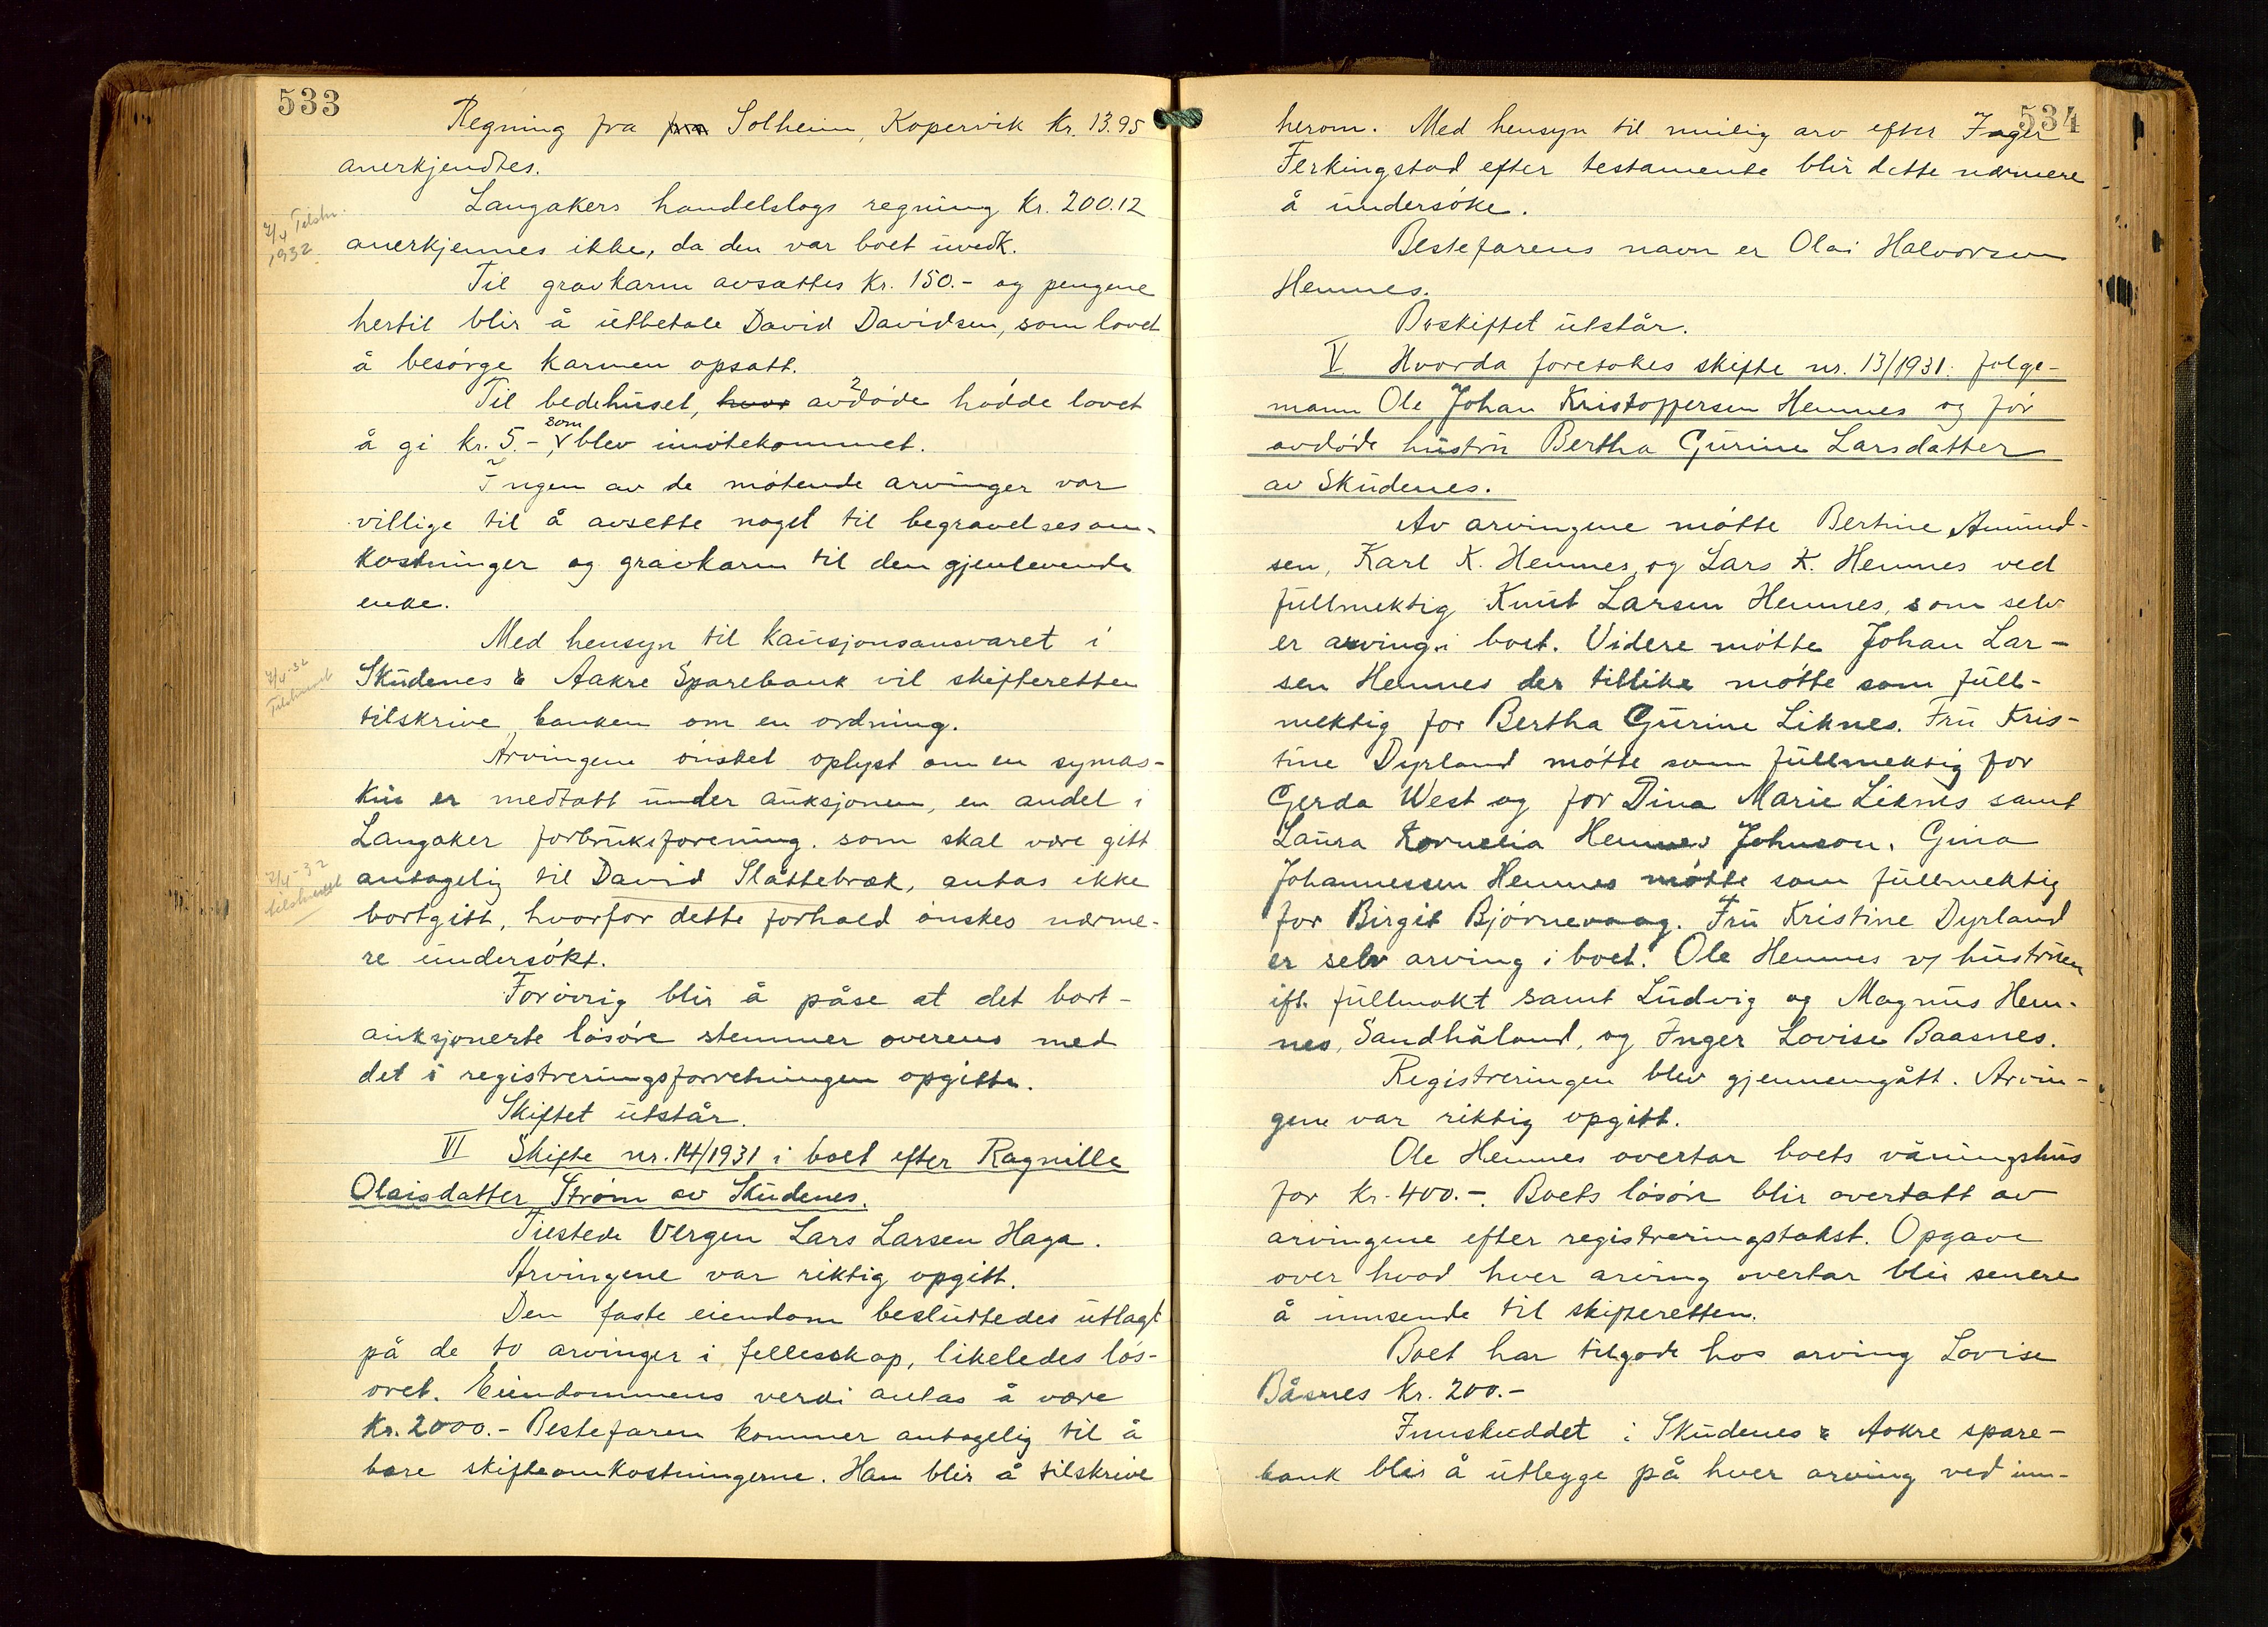 533
Regning fra fra Solheim, Kopervik kr. 13.95
anerkjendtes.
Langakers handelslags regning kr. 200.12
7/4 Tilskr.
1932.
anerkjennes ikke, da den var boet uvedk.
Til gravkarm avsattes kr. 150.- og pengene
hertil blir å utbetale David Davidsen, som lovet
å besørge karmen opsatt.
Til bedehuset, hvor avdøde hadde lovet
å gi kr. 5.-, som blev imøtekommet.
Ingen av de møtende arvinger var
villige til å avsette noget til begravelsesom-
kostninger og gravkarm til den gjenlevende
enke.
Med hensyn til kausjonsansvaret i
7/4-32
Tilskrevet
Skudenes & Aakre Sparebank vil skifteretten
tilskrive banken om en ordning.
Arvingene ønsket oplyst om en symas-
kin er medtatt under auksjonen, en andel i
Langaker forbruksforening. som skal være gitt
7/4-32
tilskrevet
antagelig til David Slåttebræk, antas ikke
bortgitt, hvorfor dette forhold ønskes nærme-
re undersøkt.
Forøvrig blir å påse at det bort-
auksjonerte løsøre stemmer overens med
det i registreringsforretningen opgitte.
Skiftet utstår.
VI Skifte nr. 14/1931 i boet efter Ragnille
Olaisdatter Strøm av Skudenes.
Tilstede Vergen Lars Larsen Haga.
Arvingene var riktig opgitt.
Den faste eiendom besluttedes utlagt
på de to arvinger i fellesskap, likeledes løs-
øret. Eiendommens verdi antas å være
kr. 2000.- Bestefaren kommer antagelig til å
bære skifteomkostningerne. Han blir å tilskrive
534
herom. Med hensyn til mulig arv efter Inger
Ferkingstad efter testamente blir dette nærmere
å undersøke.
Bestefarens navn er Olai Halvorsen
Hemnes.
Boskiftet utstår.
V Hvorda foretokes skifte nr. 13/1931. følge-
mann Ole Johan Kristoffersen Hemnes og for
avdøde hustru Bertha Gurine Larsdatter
av Skudenes.
Av arvingene møtte Bertine Amund-
sen, Karl K. Hemnes og Lars K. Hemnes ved
fullmektig Knut Larsen Hemnes, som selv
er arving i boet. Videre møtte Johan Lar-
sen Hemnes der tillike møtte som full-
mektig for Bertha Gurine Liknes. Fru Kris-
tine Dyrland møtte som fullmektig for
Gerda West og for Dina Marie Liknes samt
Laura Kornelia Hemnes Johnson. Gina
Johannessen Hemnes møtte som fullmektig
for Birgit Bjørnevaag. Fru Kristine Dyrland
er selv arving i boet. Ole Hemnes v/ hustruen
ifl. fullmakt samt Ludvig og Magnus Hem-
nes, Sandhåland, og Inger Lovise Baasnes.
Registreringen blev gjennemgått. Arvin-
gene var riktig opgitt.
Ole Hemnes overtar boets våningshus
for kr. 400.-. Boets løsøre blir overtatt av
arvingene efter registreringstakst. Opgave
over hvad hver arving overtar blir senere
å innsende til skifteretten.
Boet har tilgode hos arving Lovise
Båsnes kr. 200.-
Innskuddet i Skudenes & Aakre spare-
bank blir å utlegge på hver arving ved inn-